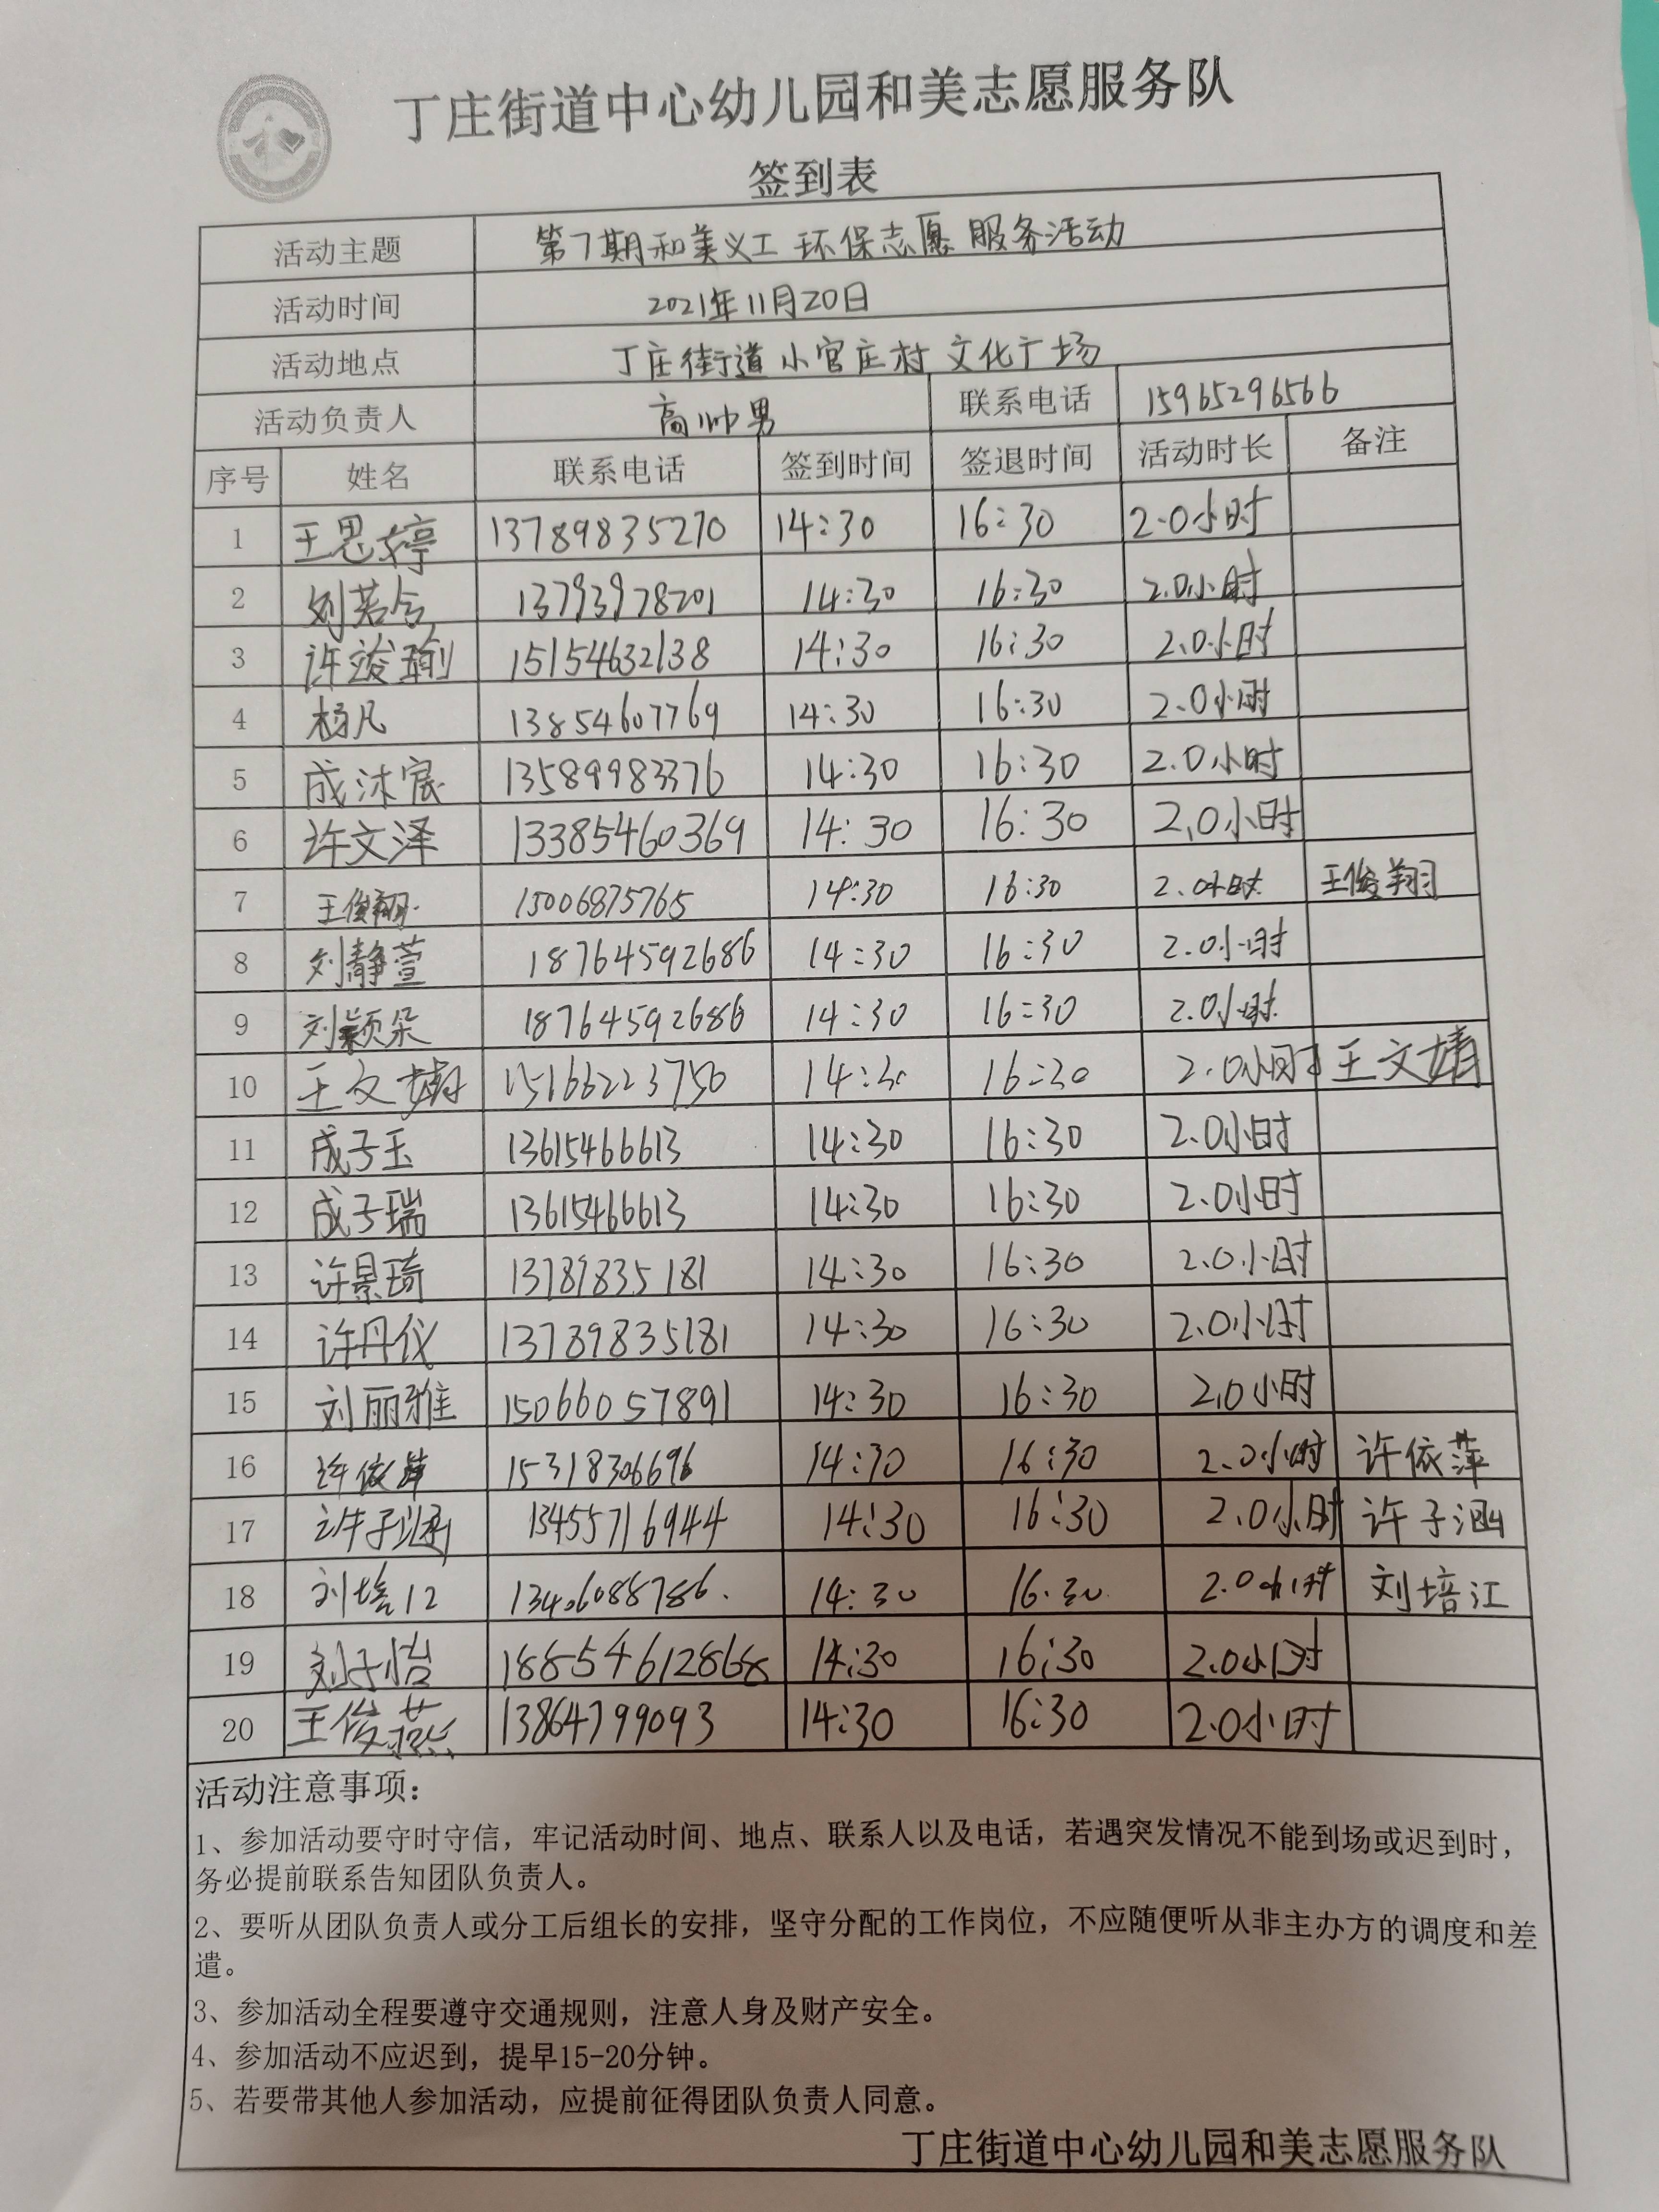 丁庄街道中心幼儿园和美志愿服务队
签到表
活动主题 第7期和美义工 环保志愿服务活动
活动时间 2021年11月20日
活动地点 丁庄街道小官庄村文化广场
活动负责人 高帅男 联系电话 15965296566
序号 姓名 联系电话 签到时间 签退时间 活动时长 备注
1 王思婷 13789835270 14:30 16:30 2.0小时
2 刘若含 13793978201 14:30 16:30 2.0小时
3 许竣瑜 15154632138 14:30 16:30 2.0小时
4 杨凡 13854607769 14:30 16:30 2.0小时
5 成沐宸 13589983376 14:30 16:30 2.0小时
6 许文泽 13385460369 14:30 16:30 2.0小时
7 王俊翔 15006875765 14:30 16:30 2.0小时 王俊翔
8 刘静萱 18764592686 14:30 16:30 2.0小时
9 刘颖朵 18764592686 14:30 16:30 2.0小时
10 王文婧 15166223750 14:30 16:30 2.0小时 王文婧
11 成子玉 13615466613 14:30 16:30 2.0小时
12 成子瑞 13615466613 14:30 16:30 2.0小时
13 许景琦 13789835181 14:30 16:30 2.0小时
14 许丹仪 13789835181 14:30 16:30 2.0小时
15 刘丽雅 15066057891 14:30 16:30 2.0小时
16 许依萍 15318306696 14:30 16:30 2.0小时 许依萍
17 许子涵 13455716944 14:30 16:30 2.0小时 许子涵
18 刘培江 13406088786. 14:30 16:30 2.0小时 刘培江
19 刘子怡 188546128668 14:30 16:30 2.0小时
20 王俊燕 13864799093 14:30 16:30 2.0小时
活动注意事项：
1、参加活动要守时守信，牢记活动时间、地点、联系人以及电话，若遇突发情况不能到场或迟到时，
务必提前联系告知团队负责人。
2、要听从团队负责人或分工后组长的安排，坚守分配的工作岗位，不应随便听从非主办方的调度和差
遣。
3、参加活动全程要遵守交通规则，注意人身及财产安全。
4、参加活动不应迟到，提早15-20分钟。
5、若要带其他人参加活动，应提前征得团队负责人同意。
丁庄街道中心幼儿园和美志愿服务队